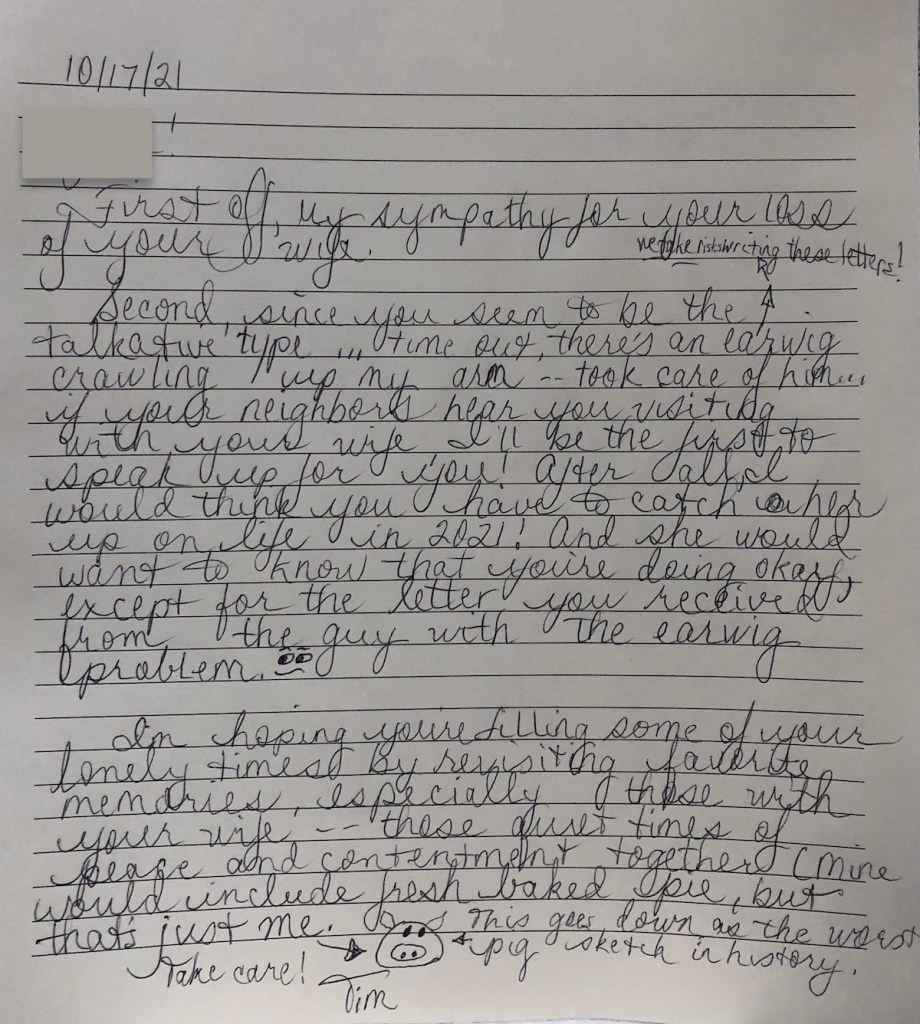 10/17/21
!
First off, my sympathy for your loss
of your wife.
we take risks writing these letters!
Second, since you seem to be the
talkative type ... time out, there's an earwig
crawling up my arm -- took care of him...
if your neighbors hear you visiting
with your wife I'll be the first to
speak up for you! After all, I
would think you have to catch her
up on life in 2021! And she would
want to know that you're doing okay,
except for the letter you received
from the guy with the earwig
problem.
I'm hoping you're filling some of your
lonely times by revisiting favorite
memories, especially those with
your wife -- those quiet times of
peace and contentment together (Mine
would include fresh baked pie, but
that's just me.
This goes down as the worst
pig sketch in history.
Take care!
Tim